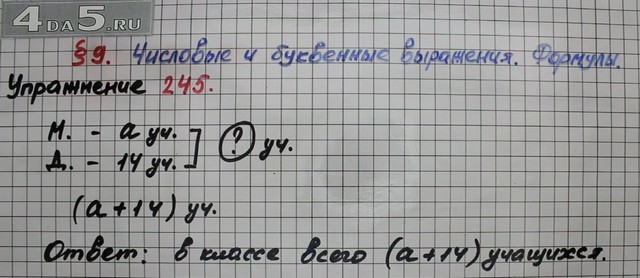 4DA5.RU
§ 9. Числовые и буквенные выражения. Формулы.
Упражнение 245.
М. - а уч.
Д. - 14 уч. ] ? уч.
(а + 14) уч.
Ответ: в классе всего (а + 14) учащихся.